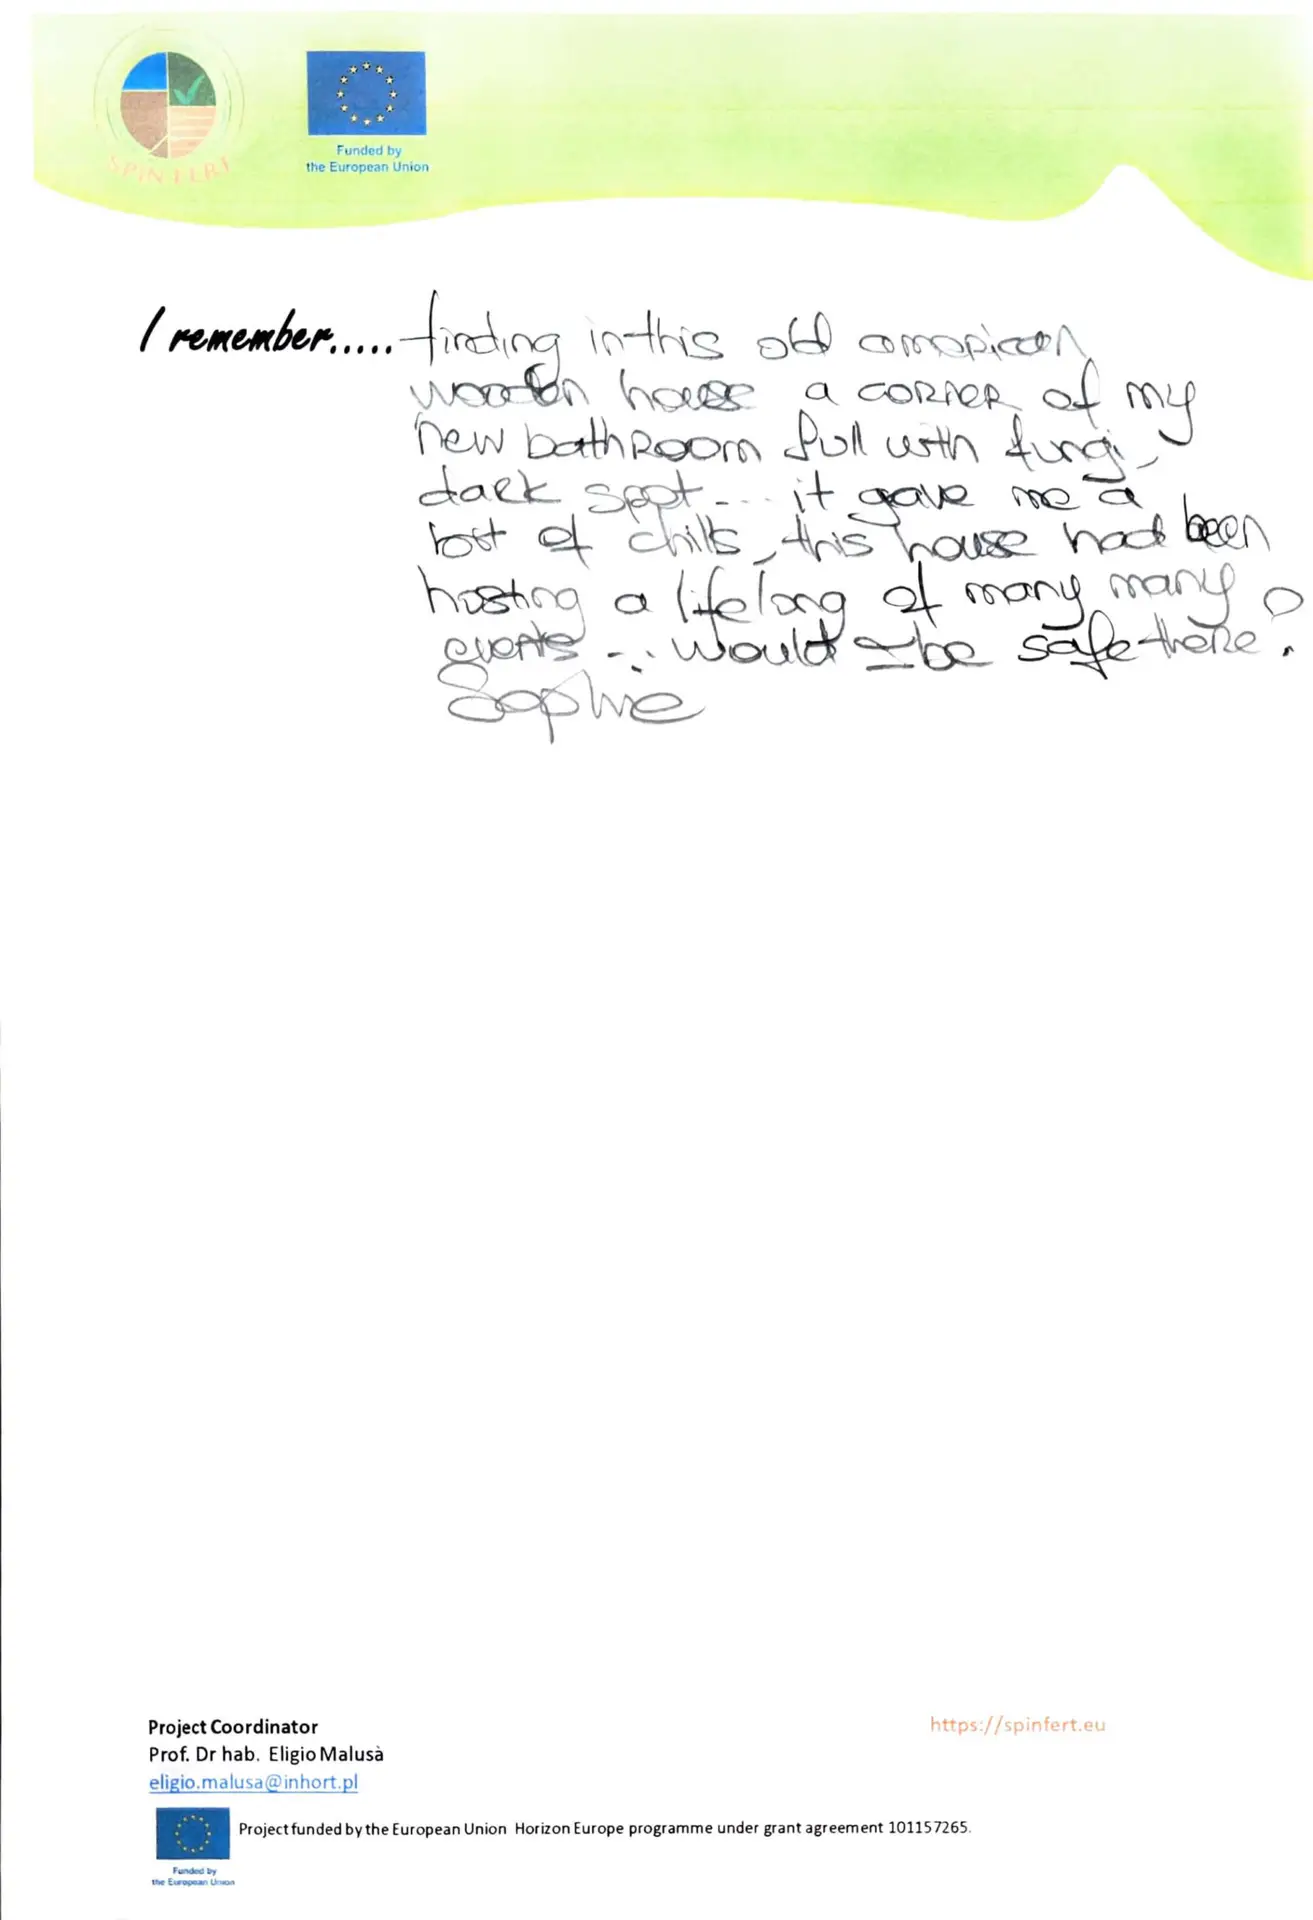 SPIN FERT
Funded by
the European Union
I remember..... finding in this old
wooden house a corner of my
new bathroom full with fungi,
dark spot... it gave me a
lost of chills, this house had been
hosting a lifelong of many many
events ... would I be safe there?
Sophie
Project Coordinator
Prof. Dr hab. Eligio Malusà
eligio.malusa@inhort.pl
https://spinfert.eu
Project funded by the European Union Horizon Europe programme under grant agreement 101157265.
Funded by
the European Union